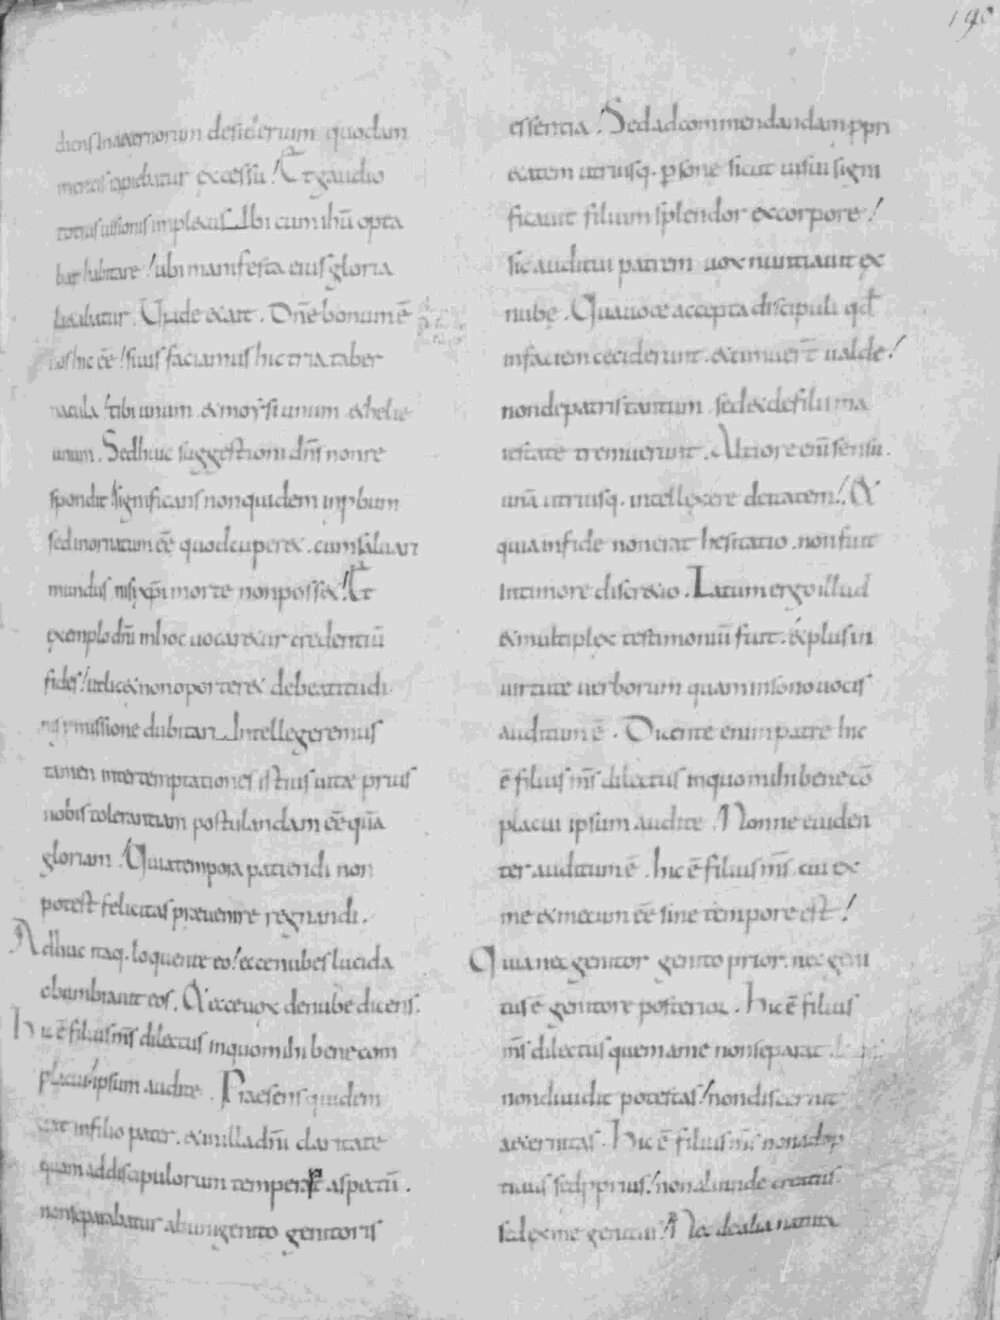 190
diens in aeternorum desiderium quodam
mentis rapiebatur excessu! Et gaudio
totius uisionis impletus Ibi cum ihū opta
bat habitare! ubi manifesta eius gloria
laetabatur. Unde et ait. Dn̄e bonum ē
nos hic eē! si uis faciamus hic tria taber
nacula! tibi unum. & moysi unum. & heliae
unum. Sed huic suggestioni dn̄s non re
spondit significans non quidem inprbum
sed inordinatum eē quod cuperet. cum saluari
mundus nisi xp̄i morte non posset! Et
exemplo dn̄i in hoc uocaretur credentiū
fides! ut licet non oporteret de beatitudi
nis p missione dubitari Intellegeremus
tamen inter temptationes istius uitae prius
nobis tolerantiam postulandam eē quā
gloriam! Quia tempora patiendi non
potest felicitas praeuenire regnandi.
Adhuc itaq. loquente eo! ecce nubes lucida
obumbrauit eos. Et ecce uox de nube dicens.
hic ē filius m̄s dilectus in quo mihi bene com
placui ipsum audite. Praesens quidem
erat in filio pater. & in illa dn̄i claritate
quam ad discipulorum temperar aspectū.
non separabatur ab unigenito genitoris
essentia. Sed ad commendandam ppri
etatem utriusq. psone sicut uisui signi
ficauit filium splendor ex corpore!
sic auditui patrem uox nuntiauit ex
nube. Qua uoce accepta discipuli qd
in faciem ceciderunt. & timuer̄ ualde!
non de patris tantum sed & de filii ma
iestate tremuerunt. Altiore eni sensu
unā utriusq. intellexere deitatem! Et
quia in fide non erat hesitatio. non fuit
in timore discretio. Latum ergo illud
& multiplex testimoniū fuit. & plus in
uirtute uerborum quam in sono uocis
auditum ē. Dicente enim patre hic
ē filius m̄s dilectus in quo mihi bene cō
placui ipsum audite. Nonne euiden
ter auditum ē. hic ē filius m̄s. cui ex
me & mecum eē sine tempore est!
Quia nec genitor genito prior. nec geni
tus ē genitore posterior. hic ē filius
m̄s dilectus quem a me non separat
non diuidit potestas! non discernit
aeternitas. hic ē filius m̄s non adop
tiuus sed pprius! non aliunde creatus.
sed ex me genitus! Nec de alia natura